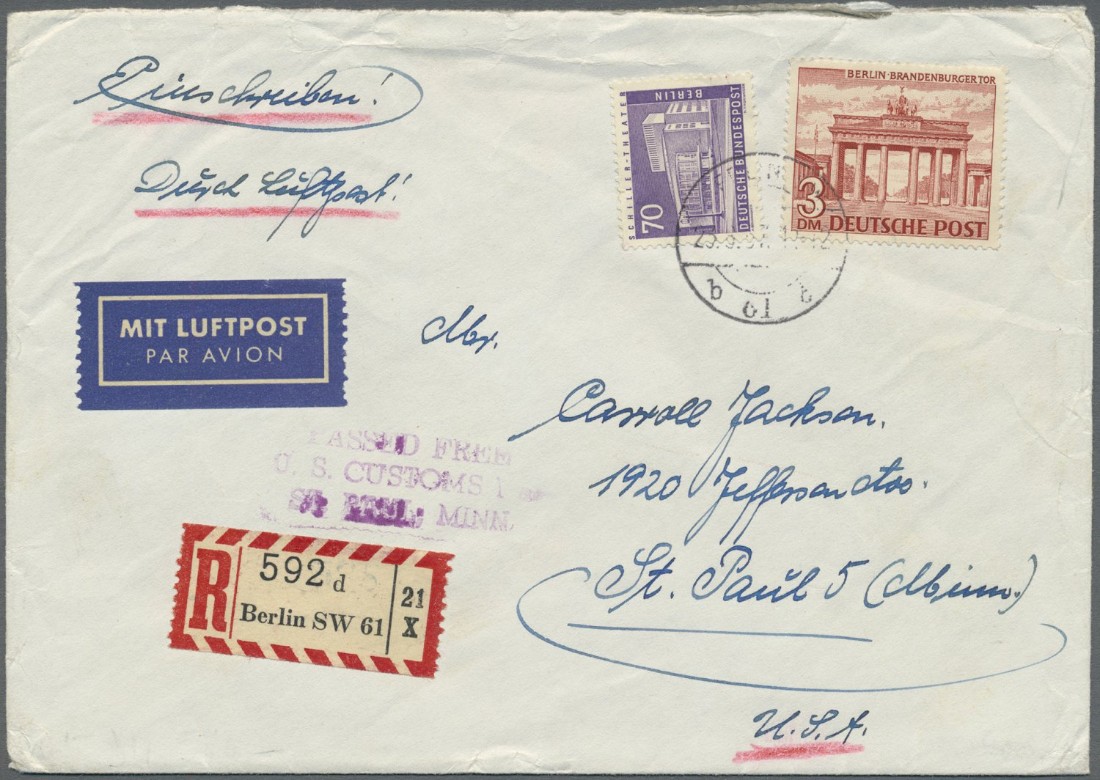 Einschreiben!
Durch Luftpost!
SCHILLER-THEATER
BERLIN
70
DEUTSCHE BUNDESPOST
BERLIN·BRANDENBURGER TOR
3
DM
DEUTSCHE POST
b 61 b
MIT LUFTPOST
PAR AVION
Mr.
Carroll Jackson.
1920 Jefferson Ave.
St. Paul 5 (Minn.)
U.S.A.
PASSED FREE
U. S. CUSTOMS
ST PAUL, MINN.
R
592 d
Berlin SW 61
21
X